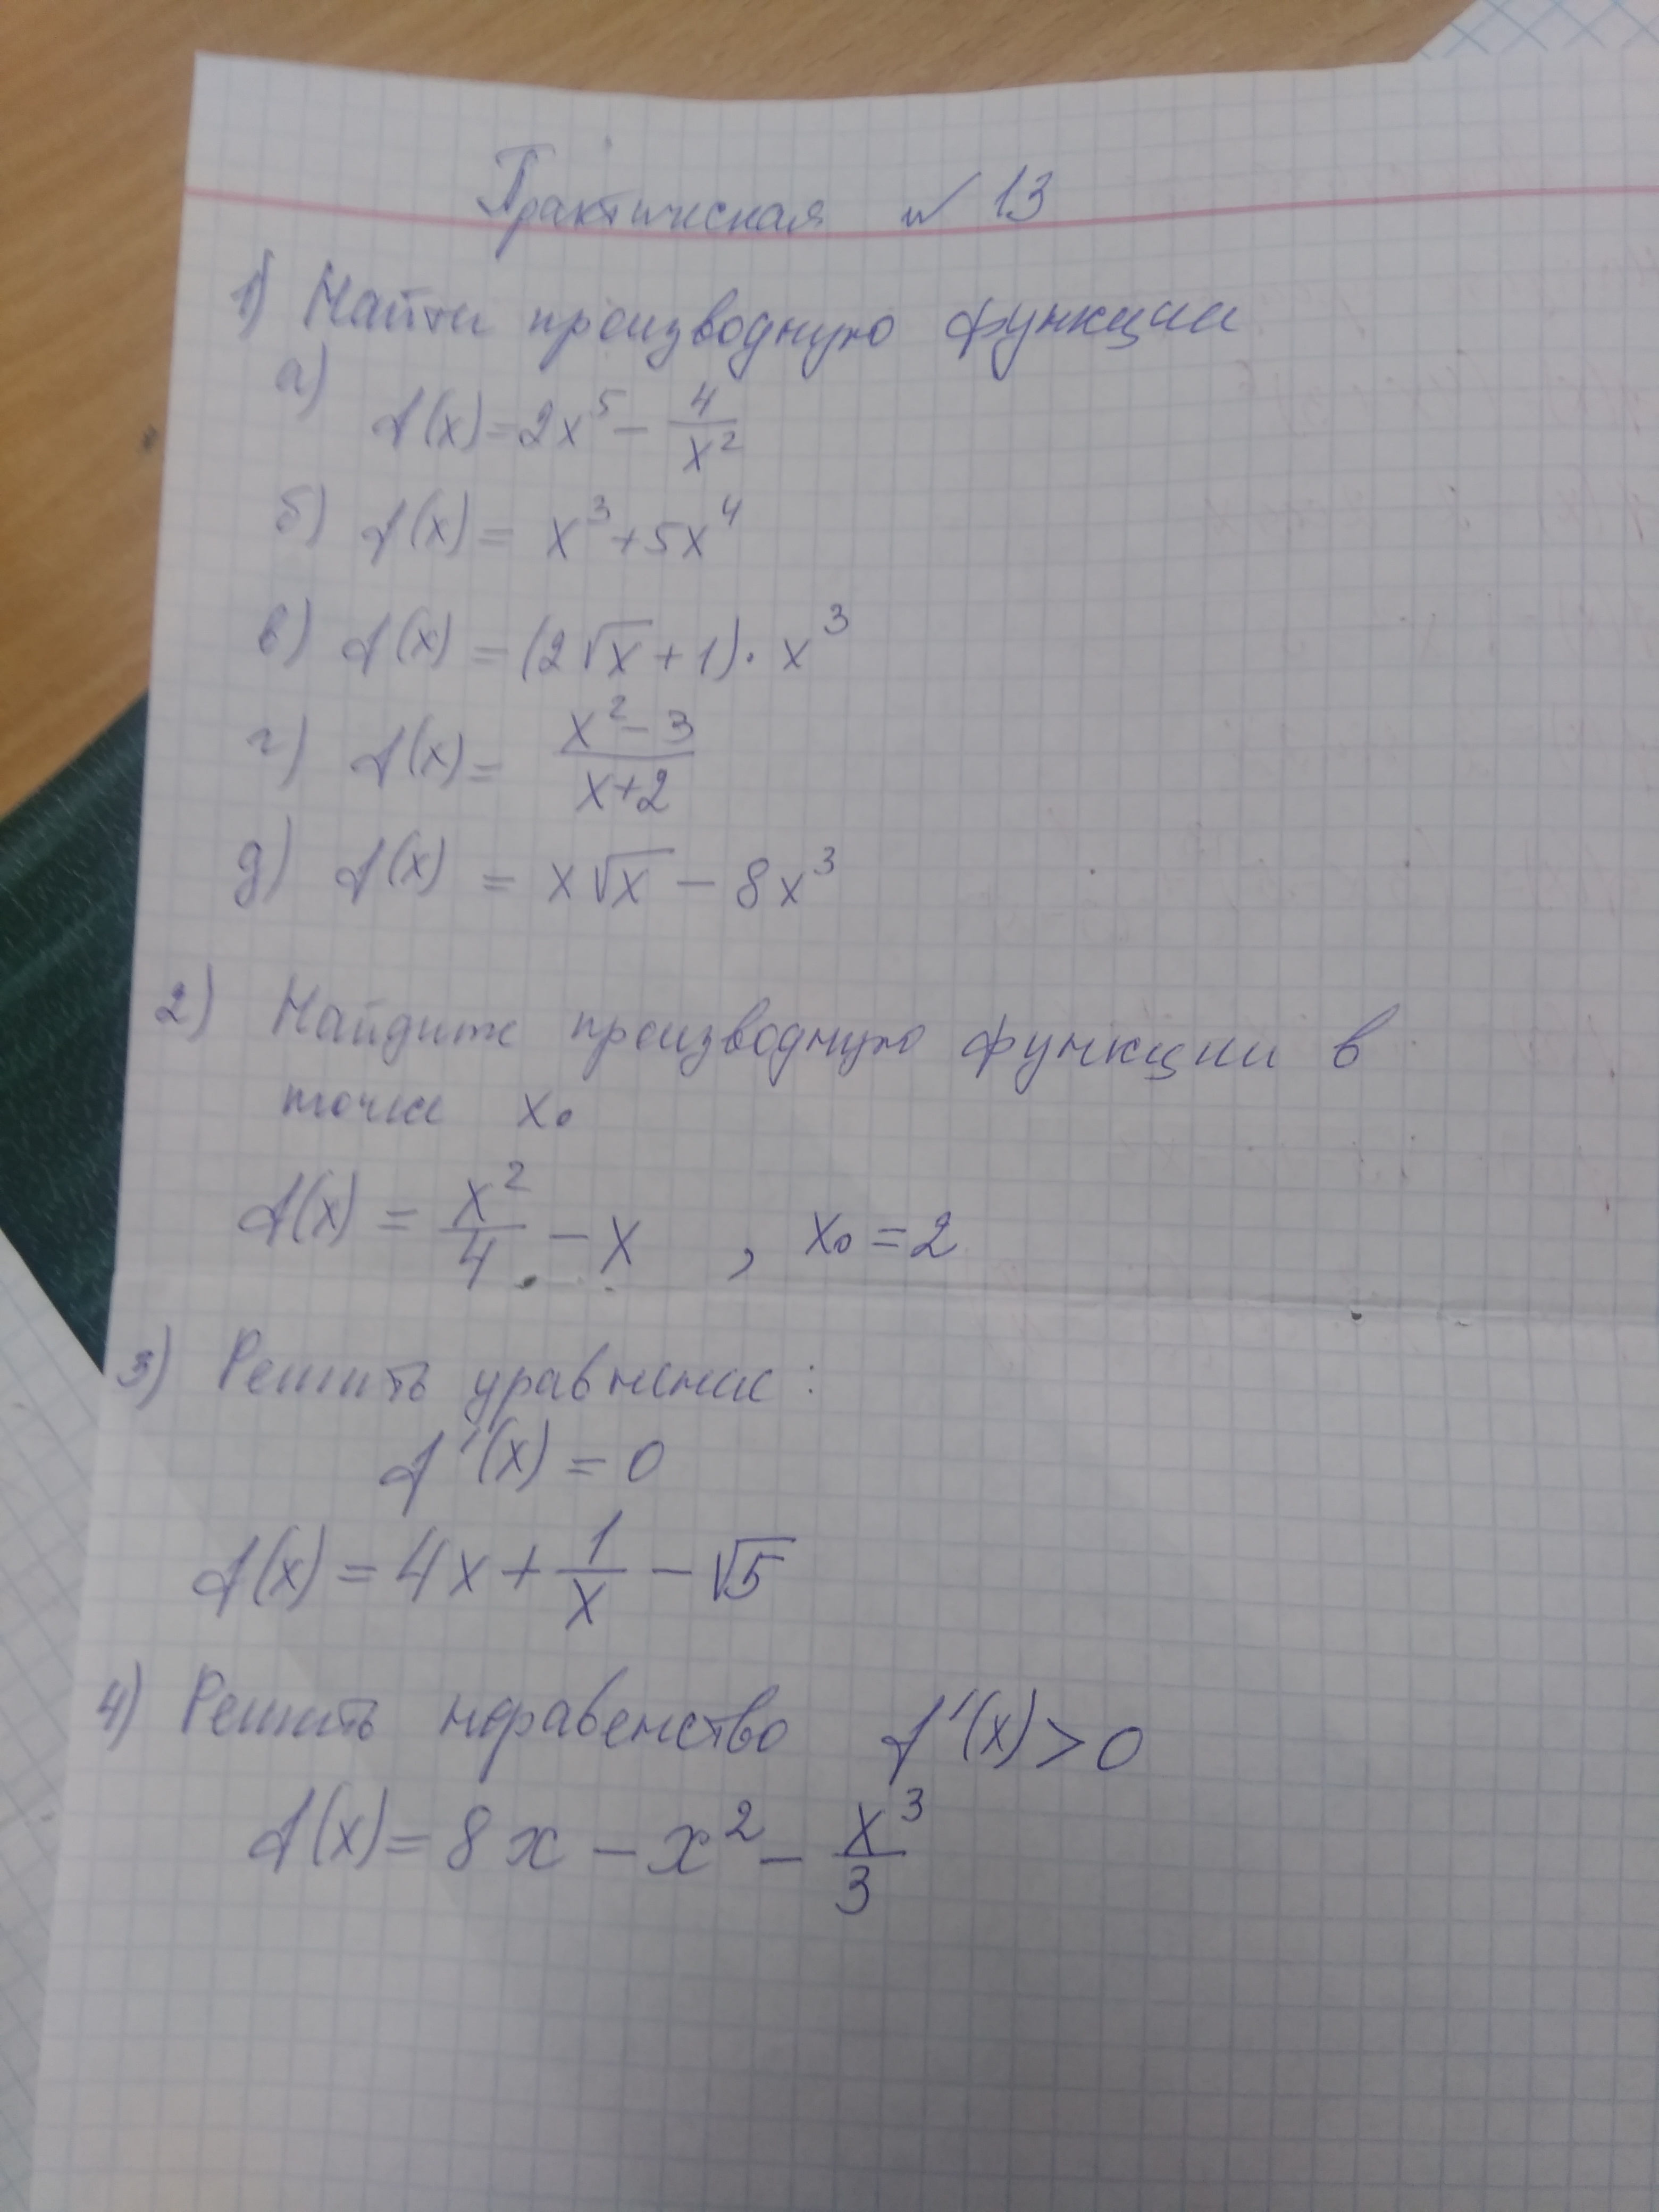 Практическая № 13
1) Найти производную функции
а) f(x) = 2x⁵ - 4/x²
б) f(x) = x³ + 5x⁴
в) f(x) = (2√x + 1) · x³
г) f(x) = (x² - 3)/(x + 2)
д) f(x) = x√x - 8x³
2) Найдите производную функции в
точке x₀
f(x) = x²/4 - x , x₀ = 2
3) Решить уравнение:
f'(x) = 0
f(x) = 4x + 1/x - √5
4) Решить неравенство f'(x) > 0
f(x) = 8x - x² - x³/3